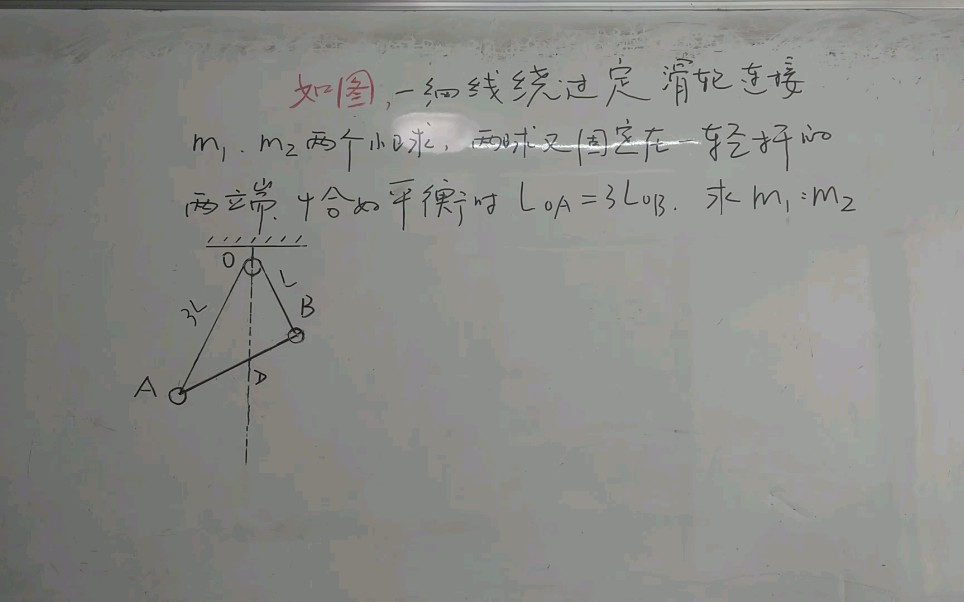 如图,一细线绕过定滑轮连接
m₁、m₂两个小球,两球又固定在一轻杆的
两端,恰好平衡时 L_OA=3L_OB. 求 m₁:m₂
O
L
3L
B
D
A